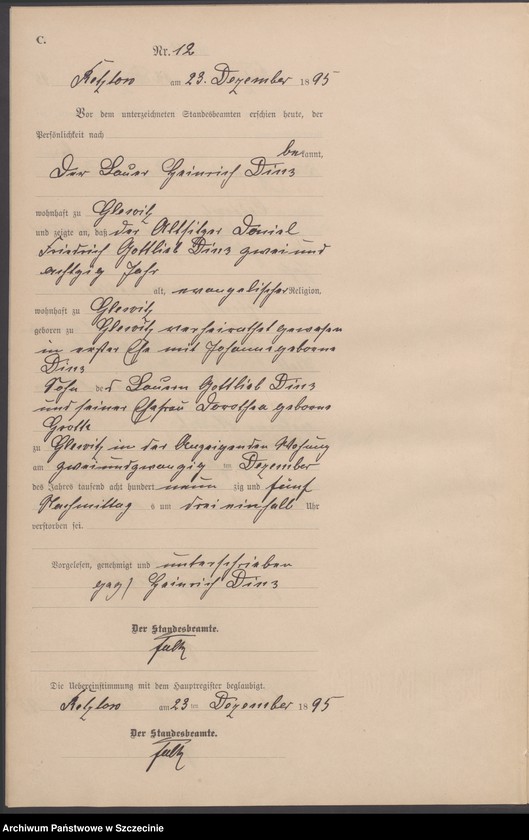 C.
Nr. 12
am 23. Dezember 1895
Vor dem unterzeichneten Standesbeamten erschien heute, der
Persönlichkeit nach
bekannt,
Der Bauer Heinrich Dinz
wohnhaft zu Glewitz
und zeigte an, daß der Altsitzer Daniel
Friedrich Gottlieb Dinz zwei und
achtzig Jahr
alt, evangelischer Religion,
wohnhaft zu Glewitz
geboren zu Glewitz verheirathet gewesen
in erster Ehe mit geborne
Dinz
Sohn des Bauern Gottlieb Dinz
und seiner Ehefrau Dorothea geborne
Grotte
zu Glewitz in der Anzeigenden Wohnung
am zweiundzwanzig ten Dezember
des Jahres tausend acht hundert neun zig und fünf
Nachmittag s um drei einhalb Uhr
verstorben sei.
Vorgelesen, genehmigt und unterschrieben
gez) Heinrich Dinz
Der Standesbeamte.
Falk
Die Uebereinstimmung mit dem Hauptregister beglaubigt.
am 23 ten Dezember 1895
Der Standesbeamte.
Falk
Archiwum Państwowe w Szczecinie